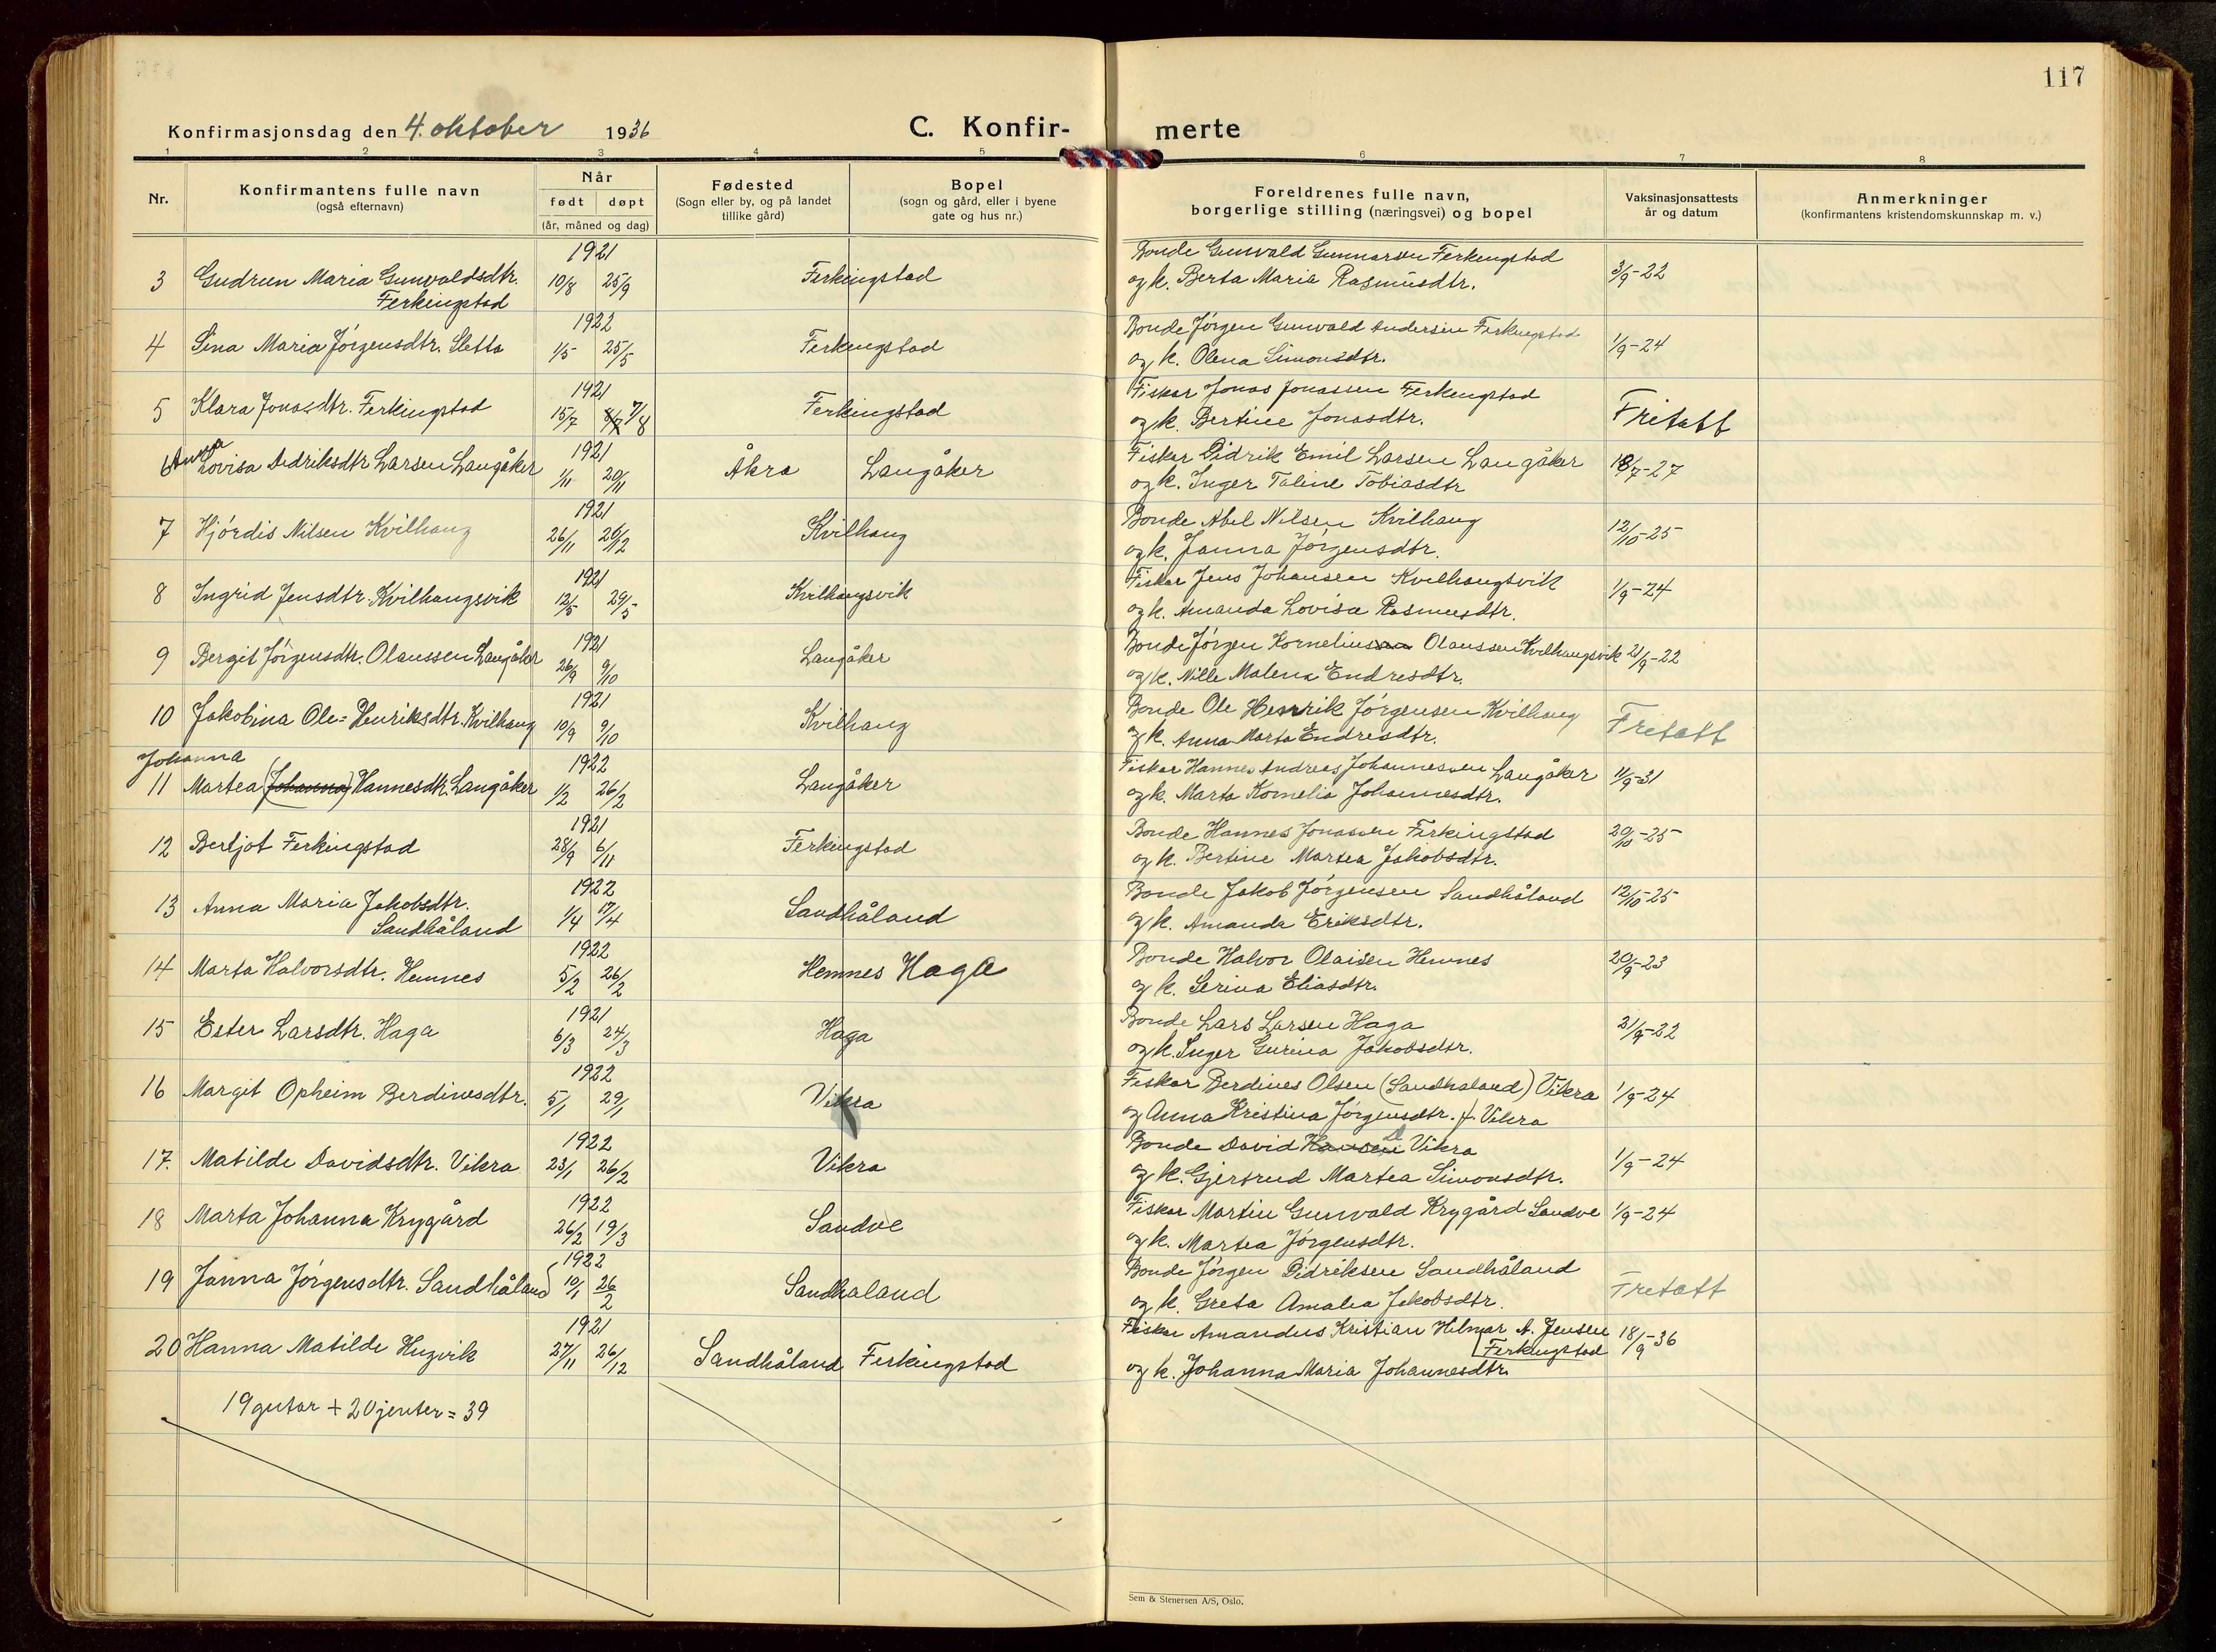 117
Konfirmasjonsdag den 4. oktober 1936
C. Konfir- merte
1 2 3 4 5 6 7 8
Nr.
Konfirmantens fulle navn
(også efternavn)
Når
født døpt
(år, måned og dag)
Fødested
(Sogn eller by, og på landet
tillike gård)
Bopel
(sogn og gård, eller i byene
gate og hus nr.)
Foreldrenes fulle navn,
borgerlige stilling (næringsvei) og bopel
Vaksinasjonsattests
år og datum
Anmerkninger
(konfirmantens kristendomskunnskap m. v.)
1921 Bonde Gunvald Gunnarsen Ferkingstad
3 Gudrun Maria Gunvaldsdtr. 10/8 25/9 Ferkingstad og k. Berta Maria Rasmusdtr. 3/9-22
Ferkingstad
1922 Bonde Jörgen Gunvald Andersen Ferkingstad
4 Sina Maria Jörgensdtr. Sletta 1/5 25/5 Ferkingstad og k. Olena Simonsdtr. 1/9-24
1921 Fiskar Jonas Jonassen Ferkingstad
5 Klara Jonasdtr. Ferkingstad 15/7 7/8 Ferkingstad og k. Bertine Jonasdtr. Fritatt
Anna 1921 Fiskar Didrik Emil Larsen Langåker
6 Lovisa Dedriksdtr Larsen Langåker 1/11 20/11 Åkra Langåker og k. Inger Taline Tobiasdtr 18/7-27
1921 Bonde Abel Nilsen Kvilhaug
7 Hjördis Nilsen Kvilhaug 26/11 26/12 Kvilhaug og k. Janna Jörgensdtr. 12/10-25
1921 Fiskar Jens Johansen Kvilhaugsvik
8 Ingrid Jensdtr. Kvilhaugsvik 12/5 29/5 Kvilhaugsvik og k. Amanda Lovise Rasmusdtr. 1/9-24
1921 Bonde Jörgen Kornelius Olaussen Kvilhaugsvik
9 Bergit Jörgensdtr. Olaussen Langåker 26/9 9/10 Langåker og k. Nille Malena Endresdtr. 21/9-22
1921 Bonde Ole Henrik Jörgensen Kvilhaug
10 Jakobina Ole-Henriksdtr. Kvilhaug 10/9 9/10 Kvilhaug og k. Anna Marta Endresdtr. Fritatt
Johanna 1922 Fiskar Hannes Andreas Johannessen Langåker
11 Martea (Johanna) Hannesdtr. Langåker 1/2 26/2 Langåker og k. Marta Kornelia Johannesdtr. 11/9-31
1921 Bonde Hannes Jonassen Ferkingstad
12 Bertjot Ferkingstad 28/9 6/11 Ferkingstad og k. Bertine Martea Jakobsdtr. 20/10-25
1922 Bonde Jakob Jörgensen Sandhåland
13 Anna Maria Jakobsdtr. 1/4 17/4 Sandhåland og k. Amanda Eriksdtr. 12/10-25
Sandhåland
1922 Bonde Halvor Olaisen Hemnes
14 Marta Halvorsdtr. Hemnes 5/2 26/2 Hemnes Haga og k. Serina Eliasdtr. 20/9-23
1921 Bonde Lars Larsen Haga
15 Ester Larsdtr. Haga 6/3 24/3 Haga og k. Inger Gurina Jakobsdtr. 21/9-22
1922 Fiskar Berdines Olsen (Sandhaland) Vikra
16 Margit Opheim Berdinesdtr. 5/1 29/1 Vikra og Anna Kristina Jörgensdtr. f. Vikra 1/9-24
1922 Bonde David Hansen Vikra
17. Matilde Davidsdtr. Vikra 23/1 26/2 Vikra og k. Gjertrud Martea Simonsdtr. 1/9-24
1922 Fiskar Martin Gunvald Krygård Sandve
18 Marta Johanna Krygård 26/2 19/3 Sandve og k. Martea Jörgensdtr. 1/9-24
1922 Bonde Jörgen Didriksen Sandhåland
19 Janna Jörgensdtr. Sandhåland 10/1 26/2 Sandhaland og k. Greta Amalia Jakobsdtr. Fritatt
1921 Fiskar Amandus Kristian Hilmar A. Jensen
20 Hanna Matilde Huzvik 27/11 26/12 Sandhåland Ferkingstad Ferkingstad 18/9-36
og k. Johanna Maria Johannesdtr.
19 gutar + 20 jenter = 39
Sem & Stenersen A/S, Oslo.